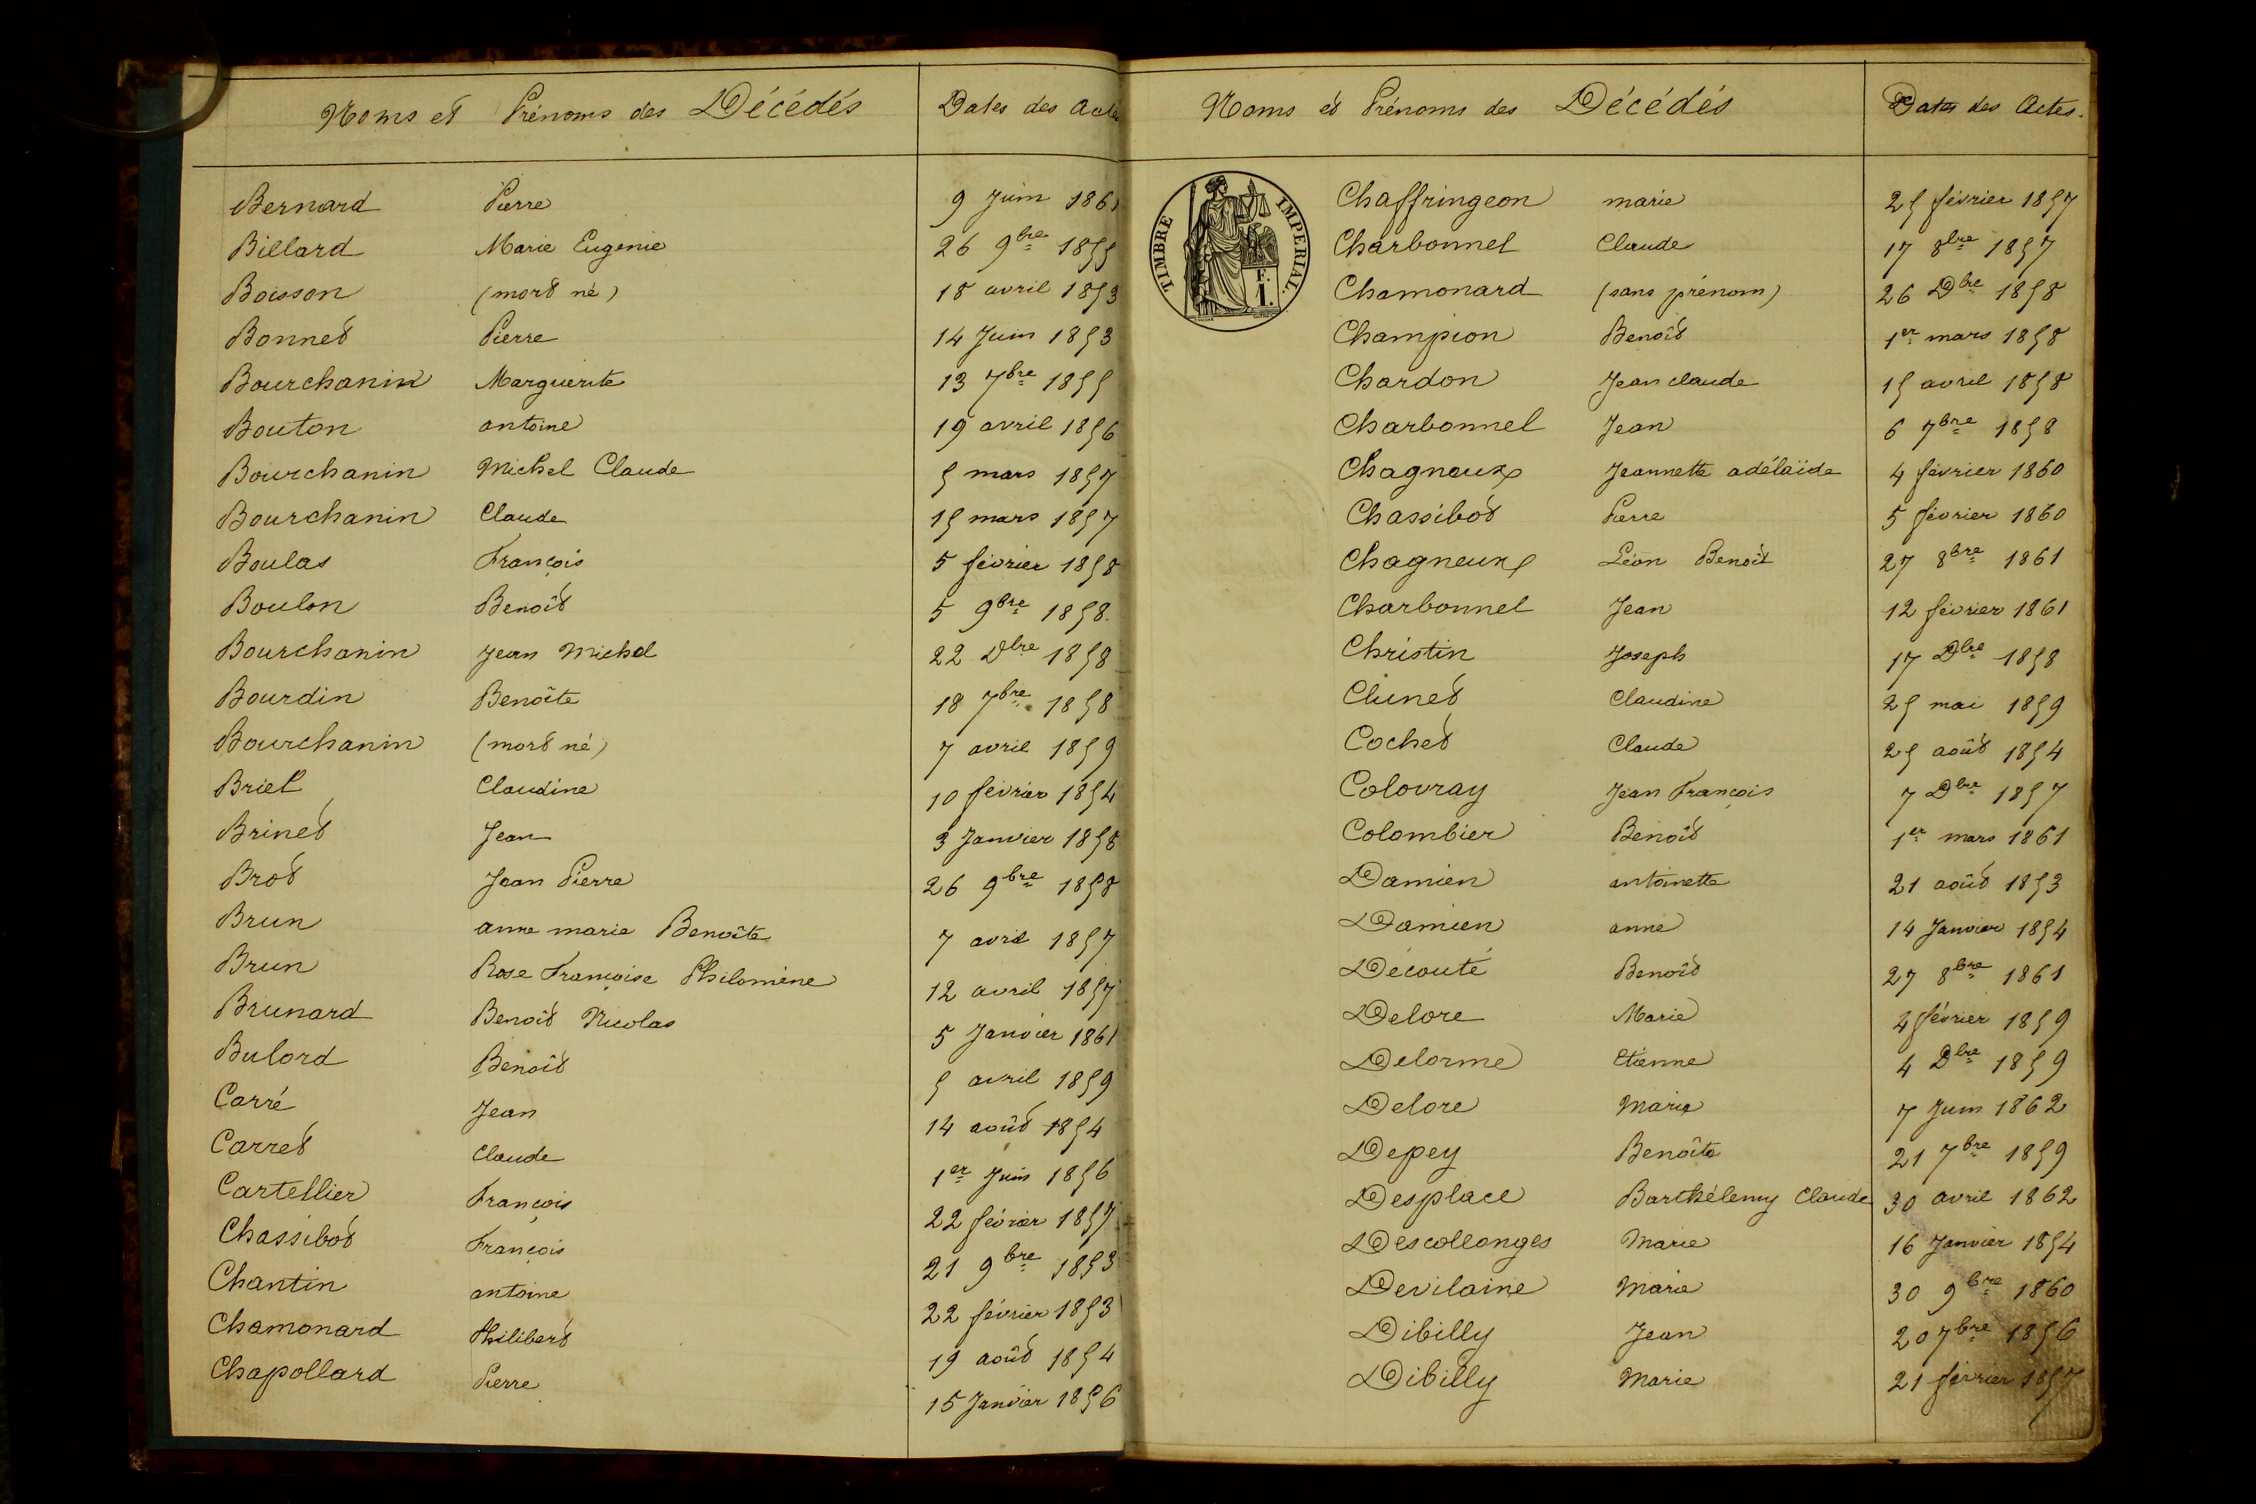 Noms et Prénoms des Décédés Dates des Actes
Bernard Pierre 9 Juin 1861
Billard Marie Eugenie 26 9bre 1855
Boisson (mort né) 18 avril 1853
Bonnet Pierre 14 Juin 1853
Bourchanin Marguerite 13 7bre 1855
Bouton antoine 19 avril 1856
Bourchanin Michel Claude 5 mars 1857
Bourchanin Claude 15 mars 1857
Boulas François 5 février 1858
Boulon Benoît 5 9bre 1858.
Bourchanin Jean Michel 22 Dbre 1858
Bourdin Benoîte 18 7bre 1858
Bourchanin (mort né) 7 avril 1859
Briel Claudine 10 février 1854
Brinet Jean 3 Janvier 1858
Brot Jean Pierre 26 9bre 1858
Brun anne marie Benoîte 7 avril 1857
Brun Rose Françoise Philomène 12 avril 1857
Brunard Benoît Nicolas 5 Janvier 1861
Bulord Benoît 5 avril 1859
Carré Jean 14 août 1854
Carret Claude 1er Juin 1856
Cartellier François 22 février 1857
Chassibot François 21 9bre 1853
Chantin antoine 22 février 1853
Chamonard Philibert 19 août 1854
Chapollard Pierre 15 Janvier 1856
Noms et Prénoms des Décédés Dates des Actes.
TIMBRE IMPERIAL.
F.
1.
Chaffringeon marie 25 février 1857
Charbonnel Claude 17 8bre 1857
Chamonard (sans prénom) 26 Dbre 1858
Champion Benoît 1er mars 1858
Chardon Jean claude 15 avril 1858
Charbonnel Jean 6 7bre 1858
Chagneux Jeannette adélaïde 4 février 1860
Chassibot Pierre 5 février 1860
Chagneux Léon Benoît 27 8bre 1861
Charbonnel Jean 12 février 1861
Christin Joseph 17 Dbre 1858
Clunet Claudine 25 mai 1859
Cochet Claude 25 août 1854
Colovray Jean François 7 Dbre 1857
Colombier Benoît 1er mars 1861
Damien antoinette 21 août 1853
Damien anne 14 Janvier 1854
Découte Benoît 27 8bre 1861
Delore Marie 4 février 1859
Delorme Etienne 4 Dbre 1859
Delore Marie 7 Juin 1862
Depey Benoîte 21 7bre 1859
Desplace Barthélemy Claude 30 avril 1862
Descollonges Marie 16 Janvier 1854
Devilaine Marie 30 9bre 1860
Dibilly Jean 20 7bre 1856
Dibilly Marie 21 février 1857